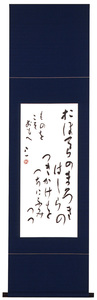 おほてらのまろき
はしらの
つきかけを
つちにふみつつ
ものを
こそ
おもへ